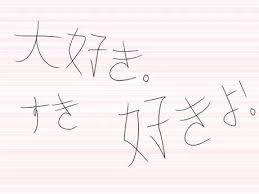 大好き。
すき 好きよ。